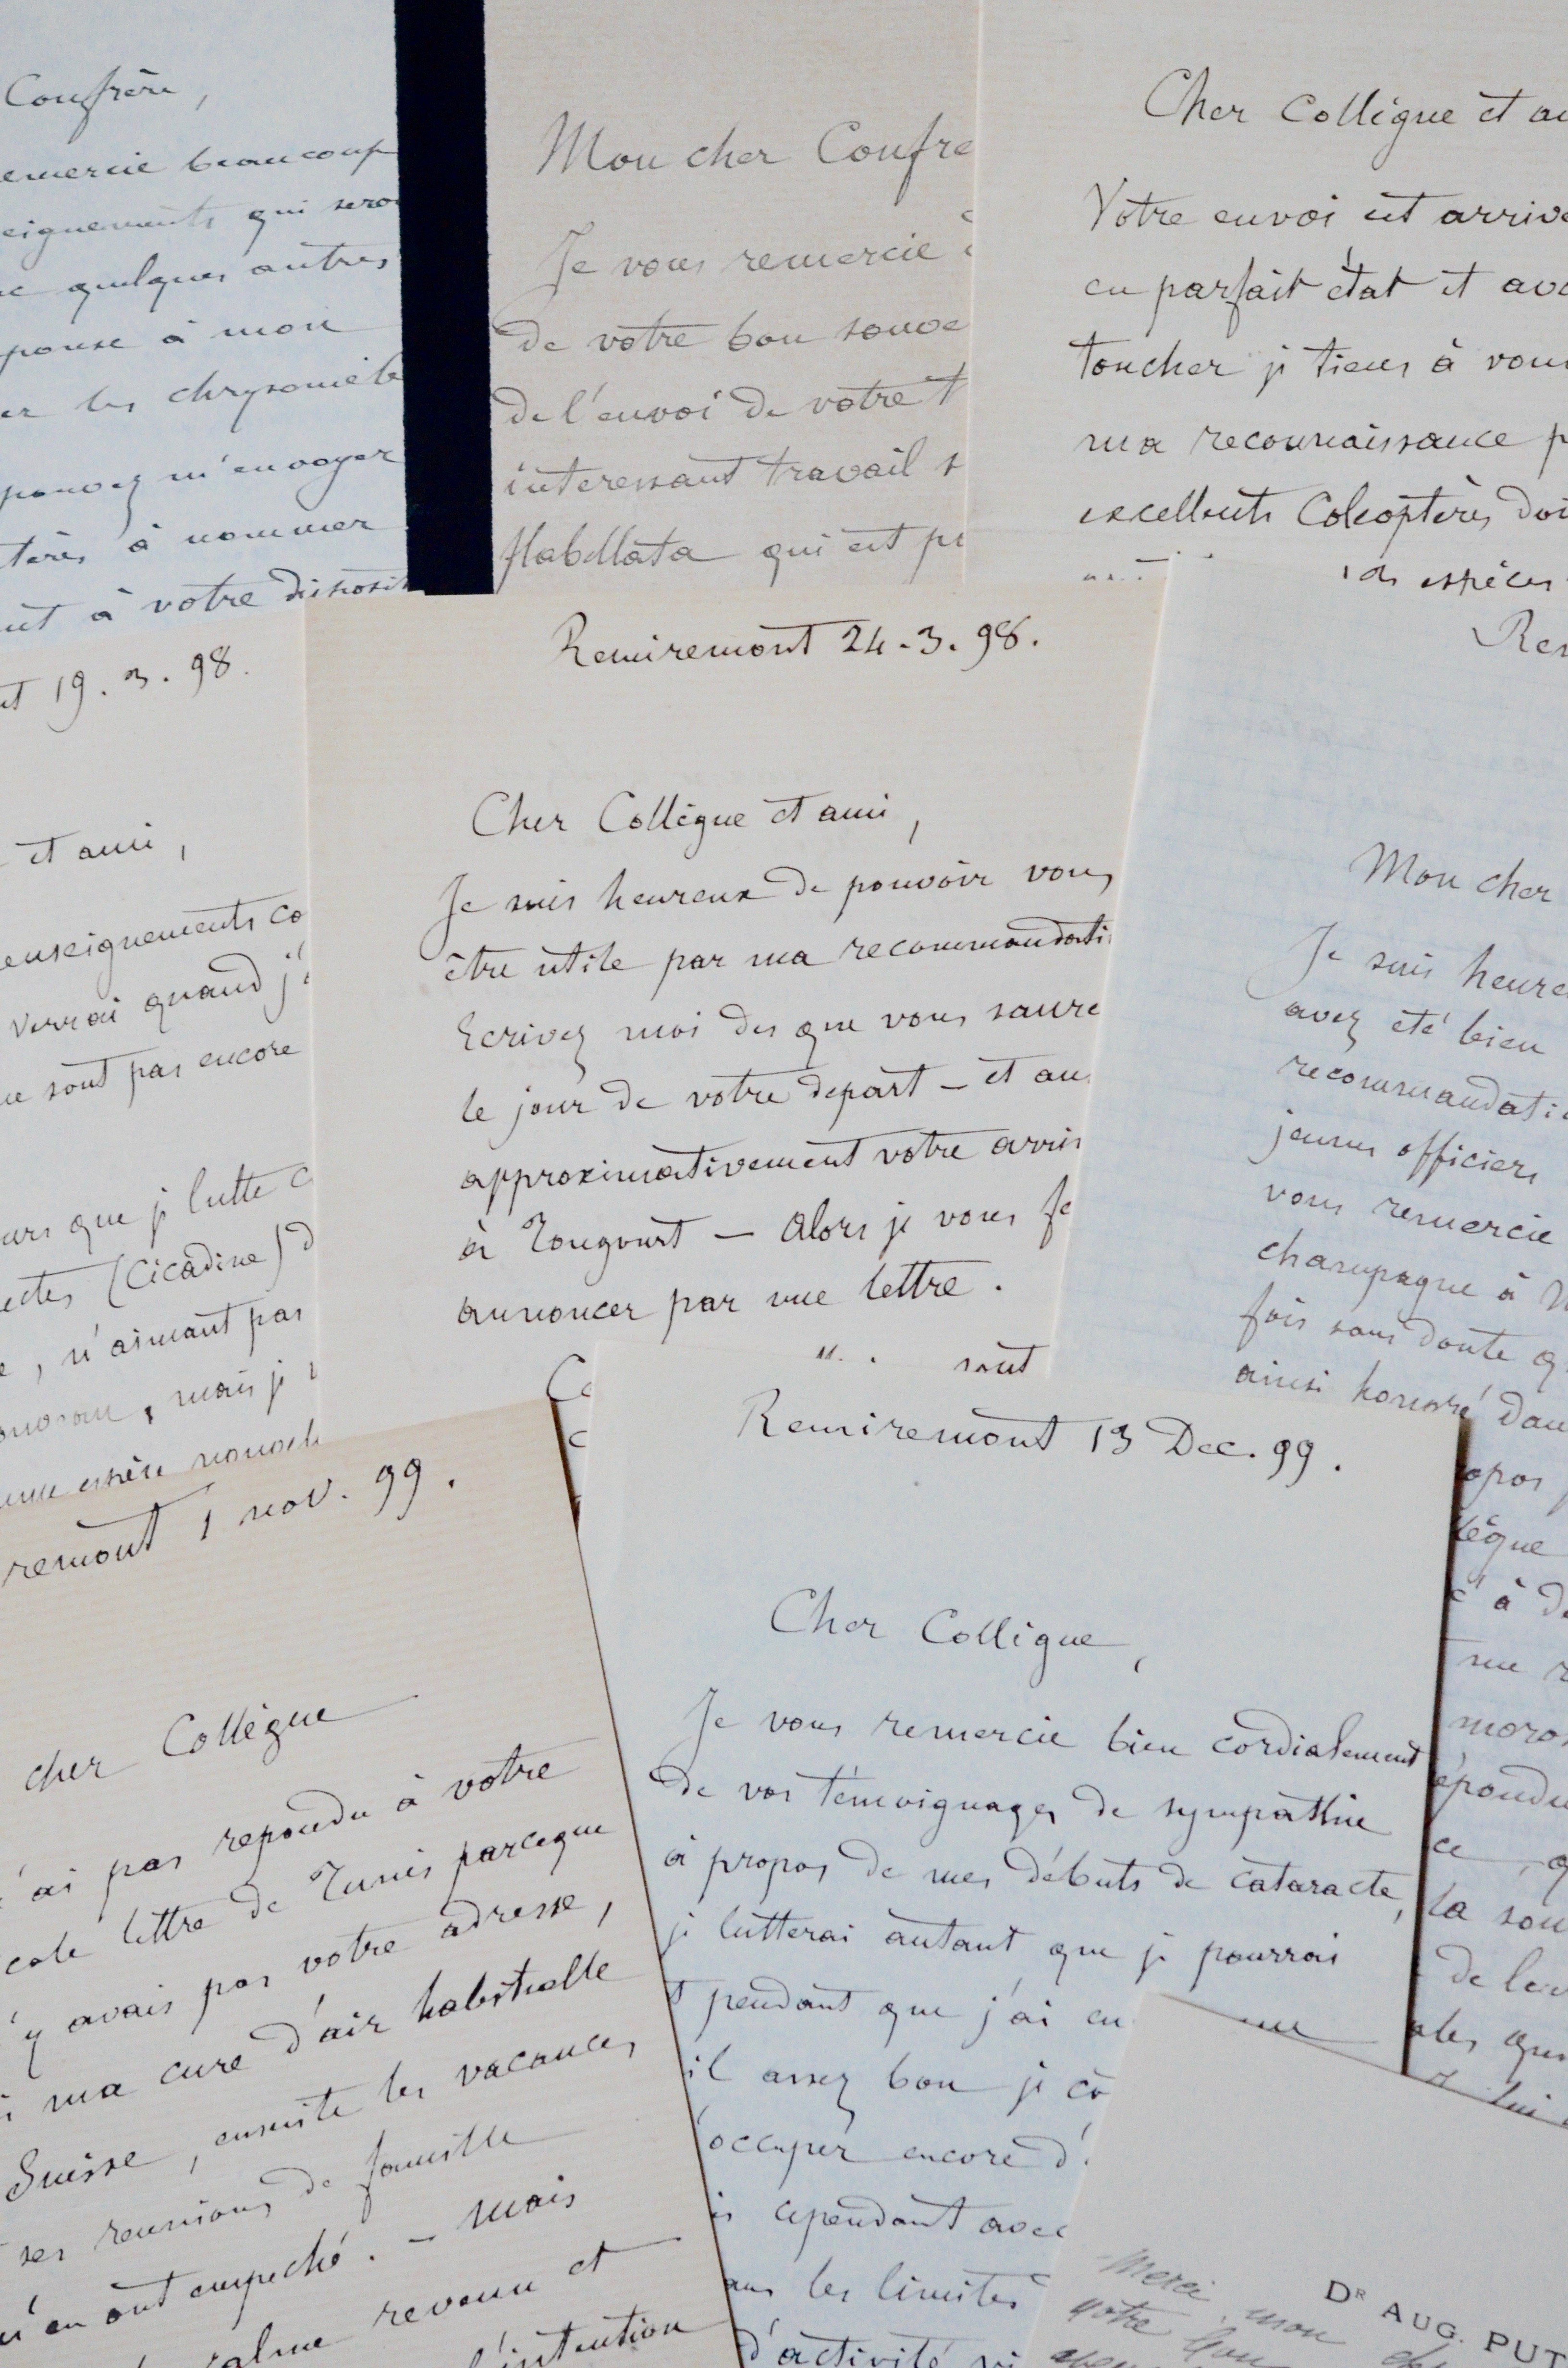 Confrère,
emercie beaucoup
eignements qui sero
quelques autres
ponse à mon
er les chrysomel
pouvez m'envoyer
tères à nommer
à votre disposit
Mon cher Confre
Je vous remercie
de votre bon souve
de l'envoi de votre t
interessant travail s
flabellata qui est pr
Cher Collègue et a
Votre envoi est arrivé
en parfait état et ava
toucher je tiens à vous
ma reconnaissance p
excellents Coleoptères doi
espèces
Rem
t 19.3.98.
et ami,
enseignements co
verrai quand j'
ne sont pas encore
urs que je lutte c
ectes (Cicadine) d
, n'aimant pas
, mais je
espèce nouvel
Remiremont 24.3.98.
Cher Collègue et ami,
Je suis heureux de pouvoir vous
être utile par ma recommandati
Ecrivez moi des que vous saure
le jour de votre depart – et au
approximativement votre arriv
à Tougourt – Alors je vous fe
annoncer par une lettre.
sont
Mon cher
Je suis heure
avez été bien
recommandatio
jeunes officiers
vous remercie
champagne à
fois sans doute q
ainsi honoré dan
opos
lègue
à d
me r
moros
épondu
ce, q
la sou
de leu
ales que
lui
remont 1 nov. 99.
cher Collègue
'ai pas repondu à votre
cale lettre de Tunis parceque
'y avais pas votre adresse,
ma cure d'air habituelle
Suisse, ensuite les vacances,
ses reunions de famille
m'en ont empeché. – Mais
calme revenu et
l'intention
Remiremont 13 Dec. 99.
Cher Collègue,
Je vous remercie bien cordialement
de vos témoignages de sympathie
à propos de mes débuts de cataracte,
je lutterai autant que je pourrai
t pendant que j'ai en
il assez bon je co
'occuper encore d'
is cependant avec
ans les limites
d'activité
DR AUG. PUT
Merci, mon ch
votre bon